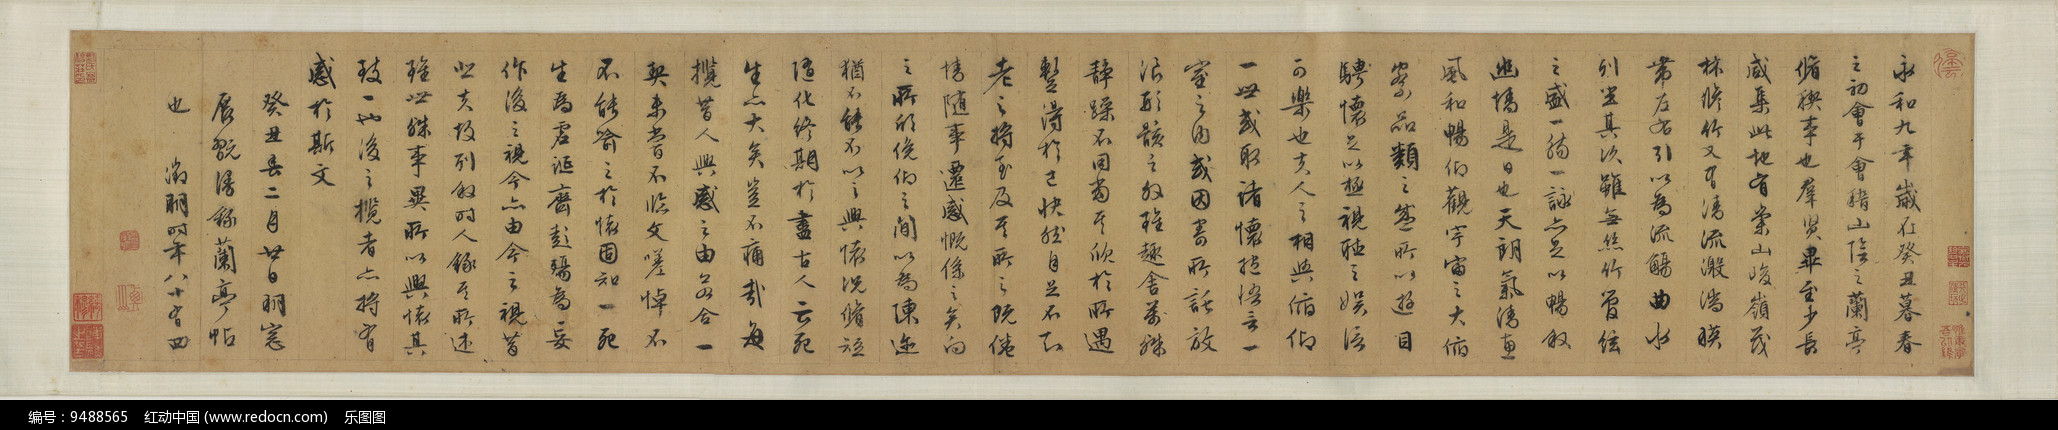 永和九年歲在癸丑暮春
之初會于會稽山陰之蘭亭
脩稧事也羣賢畢至少長
咸集此地有崇山峻嶺茂
林脩竹又有清流激湍暎
帶左右引以為流觴曲水
列坐其次雖無絲竹管絃
之盛一觴一詠亦足以暢叙
幽情是日也天朗氣清惠
風和暢仰觀宇宙之大俯
察品類之盛所以遊目
騁懷足以極視聽之娛信
可樂也夫人之相與俯仰
一世或取諸懷抱悟言一
室之內或因寄所託放
浪形骸之外雖趣舍萬殊
靜躁不同當其欣於所遇
暫得於己快然自足不知
老之將至及其所之既倦
情隨事遷感慨係之矣向
之所欣俛仰之間以為陳迹
猶不能不以之興懷況脩短
隨化終期於盡古人云死
生亦大矣豈不痛哉每
攬昔人興感之由若合一
契未嘗不臨文嗟悼不
不能喻之於懷固知一死
生為虛誕齊彭殤為妄
作後之視今亦由今之視昔
悲夫故列叙時人錄其所述
雖世殊事異所以興懷其
致一也後之攬者亦將有
感於斯文
癸丑春二月廿日明窓
展玩漫錄蘭亭帖
也 徵明時年八十有四
编号：9488565 红动中国 (www.redocn.com) 乐图图